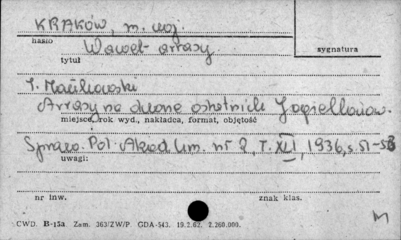 KRAKÓW, m. woj.
hasło
Wawel - arrasy
sygnatura
tytuł
Arrasy na dworze ostatnich Jagiellonów.
miejsce, rok wyd., nakładca, format, objętość
Spraw. Pol. Akad. Um. nr 2, T. XLI, 1936, s. 51-53
uwagi:
nr inw.
znak klas.
CWD. B-15a Zam. 363/ZW/P. GDA-543. 19.2.62. 2.260.000.